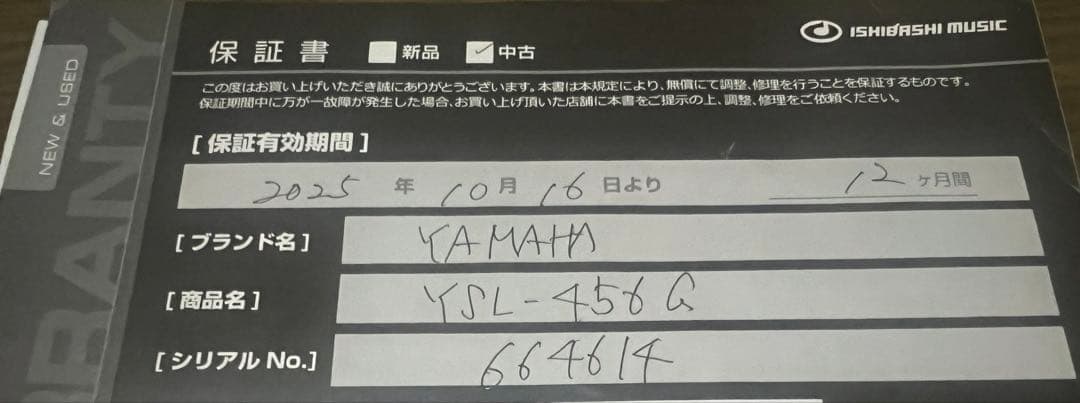 ISHIBASHI MUSIC
保証書 新品 ✓ 中古
この度はお買い上げいただき誠にありがとうございます。本書は本規定により、無償にて調整、修理を行うことを保証するものです。
保証期間中に万が一故障が発生した場合、お買い上げ頂いた店舗に本書をご提示の上、調整、修理をご依頼ください。
NEW & USED
[ 保証有効期間 ]
2025 年 10 月 16 日より 12 ヶ月間
[ ブランド名 ] YAMAHA
[ 商品名 ] YSL-456G
[ シリアル No.] 664614